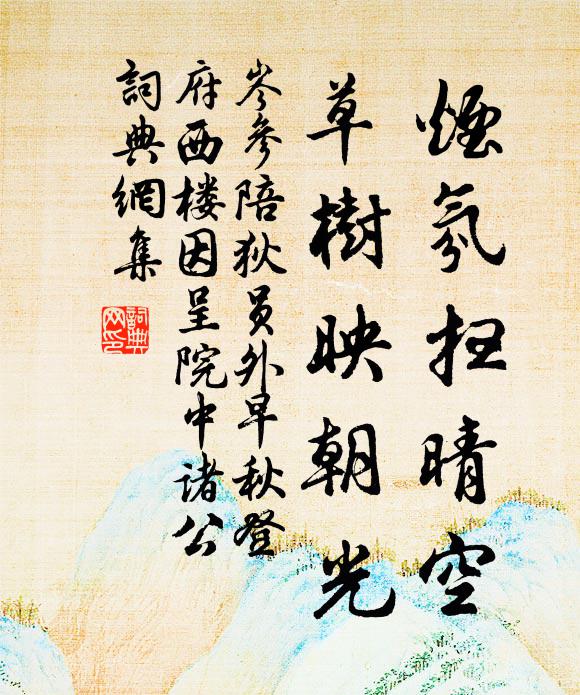 煙氛掃晴空
草樹映朝光
岑參陪狄員外早秋登
府西楼因呈院中诸公
詞典網集
詞典
网印